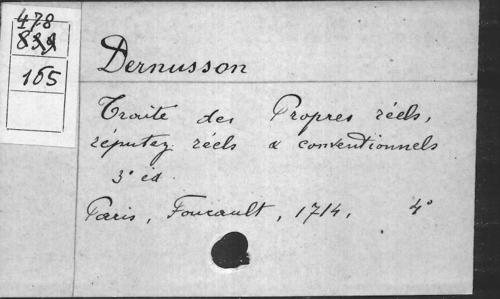 478
839
165
Dernusson
Traité des Propres réels,
réputez réels & conventionnels
3e éd.
Paris, Foucault, 1714, 4°